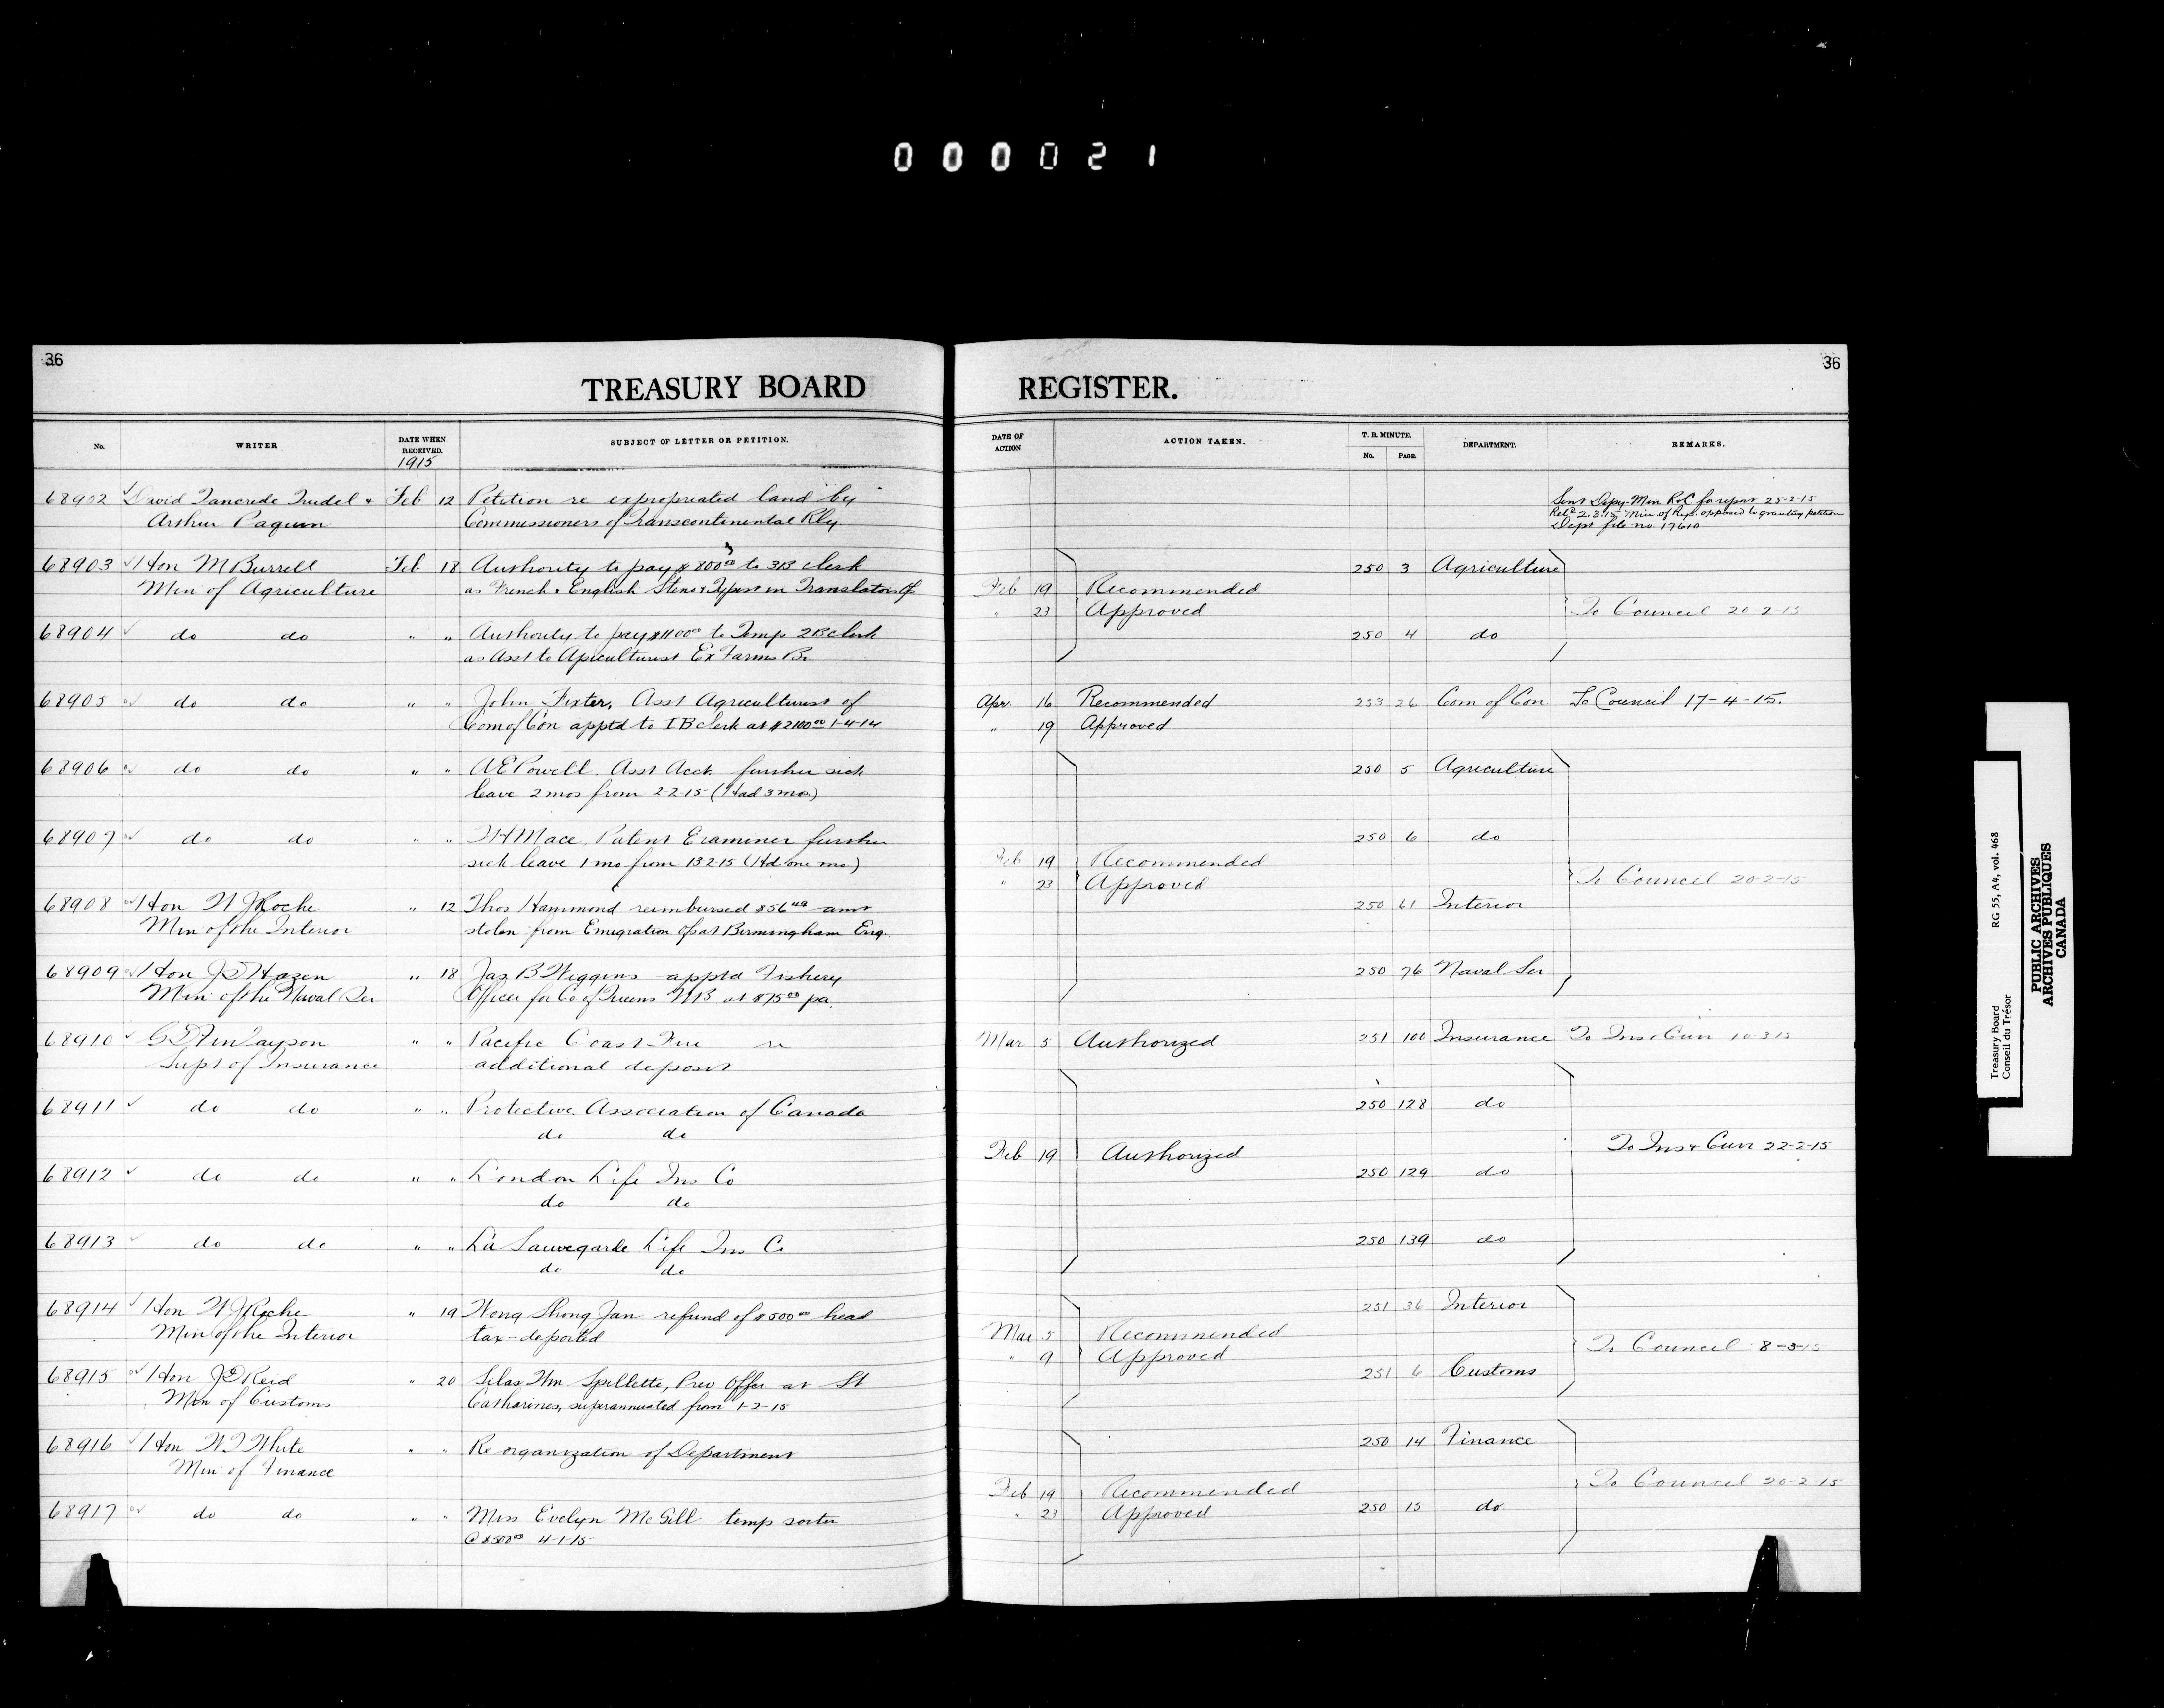 000021
36
TREASURY BOARD
No.
WRITER
DATE WHEN RECEIVED.
1915
SUBJECT OF LETTER OR PETITION.
68902 David Tancrede Trudel & Feb 12 Petition re expropriated land by
Arthur Paquin Commissioners of Transcontinental Rly
68903 Hon M Burrell Feb 18 Authority to pay $800.00 to 3B clerk
Min of Agriculture as French & English Steno & Typist in Translators Of
68904 do do " " Authority to pay $1100.00 to Temp 2B clerk
as Asst to Apiculturist Ex Farms Br
68905 do do " " John Fixter, Asst Agriculturist of
Com of Con apptd to 1B clerk at $2100.00 1-4-14
68906 do do " " A E Powell Asst Acct. further sick
leave 2 mos from 2 2-15 (Had 3 mos.)
68907 do do " " Mace, Patent Examiner further
sick leave 1 mo from 13 2-15 (Hd one mo)
68908 Hon W J Roche " 12 Thos Hammond reimbursed $56 amt
Min of the Interior stolen from Emigration Of at Birmingham Eng.
68909 Hon J D Hazen " 18 Jas B Wiggins apptd Fishery
Min of the Naval Ser Officer for Co of Queens NB at $75.00 pa.
68910 G D Finlayson " " Pacific Coast Fire re
Supt of Insurance additional deposit
68911 do do " " Protective Association of Canada
do do
68912 do do " " London Life Ins Co
do do
68913 do do " " La Sauvegarde Life Ins Co
do do
68914 Hon W J Roche " 19 Wong Shong Jan refund of $500.00 head
Min of the Interior tax - deported
68915 Hon J D Reid " 20 Silas Wm Spillette, Prev Offer at St
Min of Customs Catharines, superannuated from 1-2-15
68916 Hon W T White " " Re organization of Department
Min of Finance
68917 do do " " Miss Evelyn McGill temp sorter
@ $500.00 4-1-15
36
REGISTER.
DATE OF ACTION
ACTION TAKEN.
T. B. MINUTE.
No. PAGE.
DEPARTMENT.
REMARKS.
Sent Depy Min R&C for report 25-2-15
Retd 2.3.15 Min of Rys. opposed to granting petition
Dept file no. 17610
250 3 Agriculture
Feb 19 Recommended
" 23 Approved To Council 20-2-15
250 4 do
Apr 16 Recommended 253 26 Com of Con To Council 17-4-15.
" 19 Approved
250 5 Agriculture
250 6 do
Feb 19 Recommended
" 23 Approved To Council 20-2-15
250 61 Interior
250 76 Naval Ser
Mar 5 Authorized 251 100 Insurance To Ins & Curr 10 3 15
250 128 do
Feb 19 Authorized To Ins & Curr 22-2-15
250 129 do
250 139 do
251 36 Interior
Mar 5 Recommended
" 9 Approved To Council 8-3-15
251 6 Customs
250 14 Finance
Feb 19 Recommended To Council 20-2-15
" 23 Approved 250 15 do.
Treasury Board RG 55, A4, vol. 468
Conseil du Trésor
PUBLIC ARCHIVES
ARCHIVES PUBLIQUES
CANADA